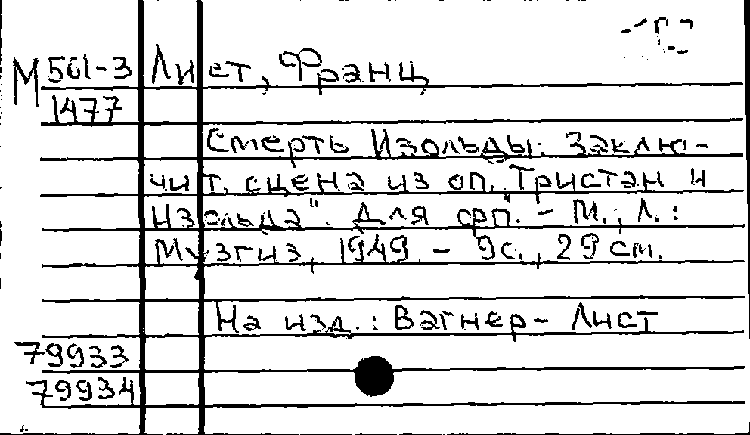 М 501-3 Лист, Франц
1477
Смерть Изольды. Заклю-
чит. сцена из оп. "Тристан и
Изольда". Для фп. - М.; Л.:
Музгиз, 1949 - 9с., 29 см.
На изд.: Вагнер - Лист
79933
79934